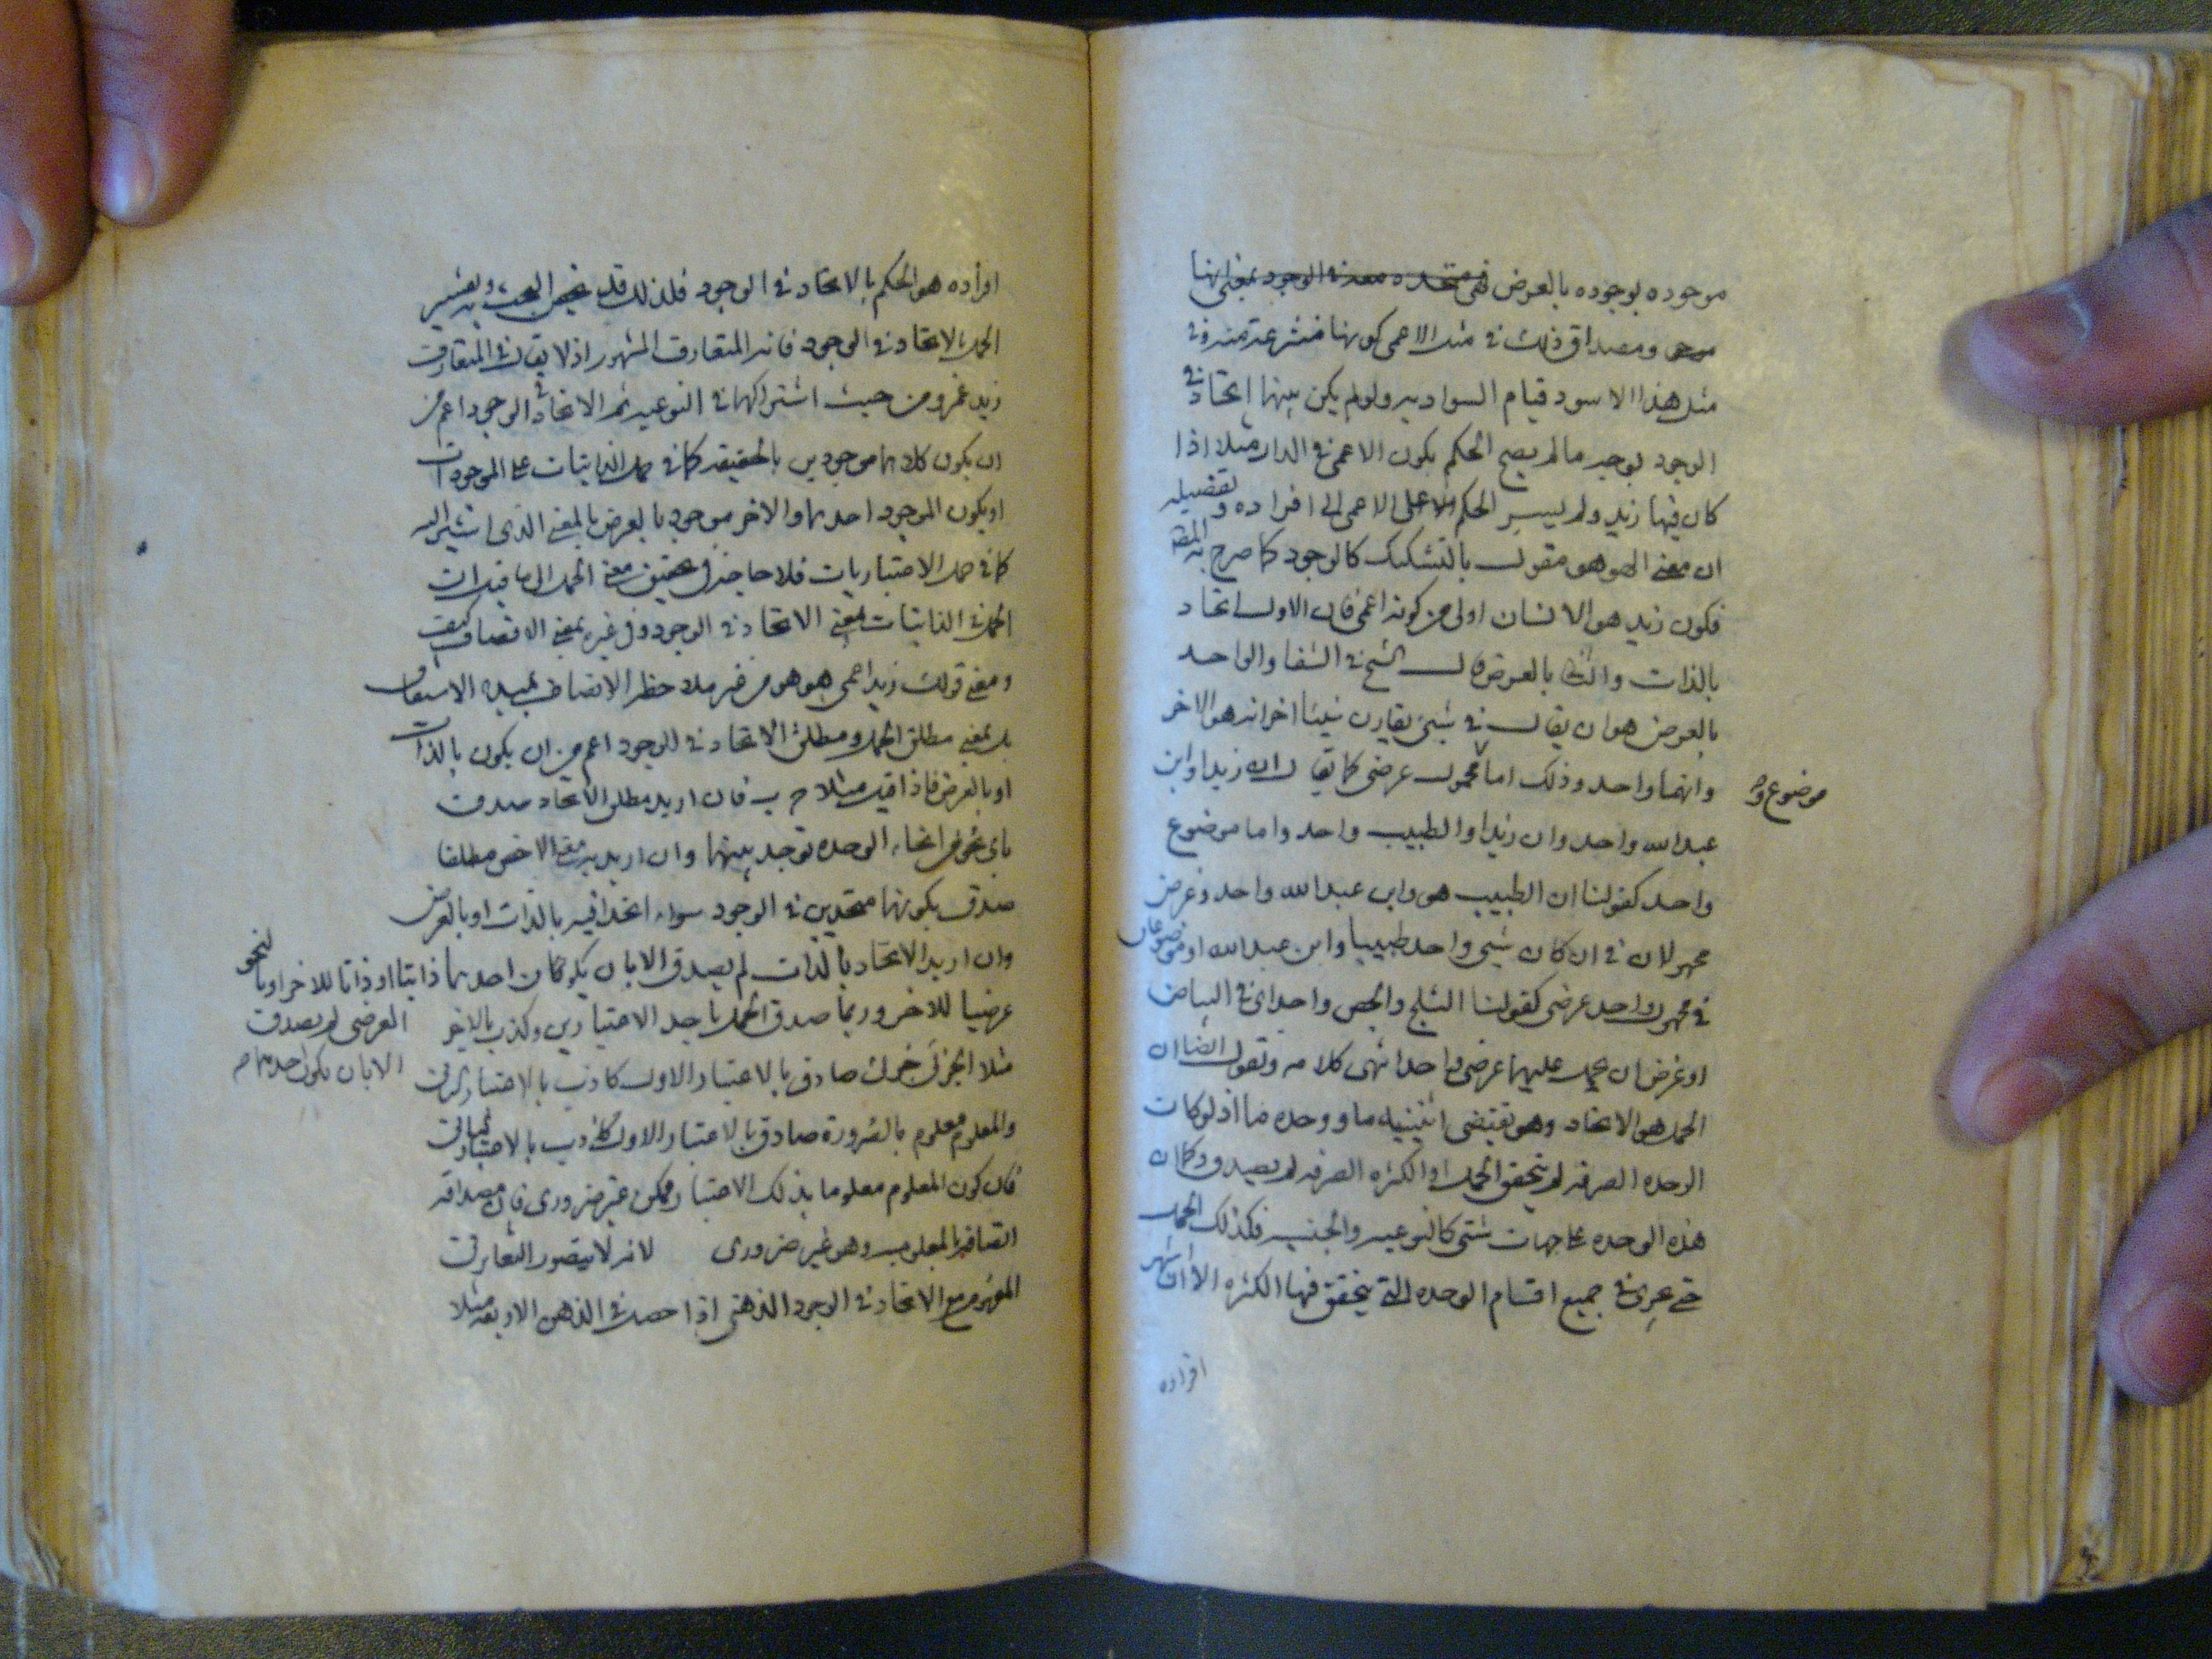 موجوده بوجوده بالعرض فهى متحده معه فى الوجود بمعنى انها
ومصداق ذلك فى مثل الاعمى كونها منتزعة منه وفى
مثل هذا الاسود قيام السواد به ولو لم يكن بينهما اتحاد فى
الوجود بوجه ما لم يصح الحكم بكون الاعمى فى الدار مثلا اذا
كان فيها زيد ولم يسر الحكم على الاعمى الى افراده وتفصيله
ان معنى الهو هو مقول بالتشكيك كالوجود كما صرح به
فكون زيد هو الانسان اولى من كونه اعمى فان الاول اتحاد
بالذات والثانى بالعرض قال الشيخ فى الشفا والواحد
بالعرض هو ان يقال فى شيئ يقارن شيئا اخر انه هو الاخر
وانهما واحد وذلك اما محمول عرضى كما يقال ان زيدا وابن
موضوع و
عبد الله واحد وان زيدا والطبيب واحد واما موضوع
واحد كقولنا ان الطبيب هو وابن عبد الله واحد وعرض
محمولان فى ان كان شيئ واحد طبيبا وابن عبد الله او موضوعان
فى محمول واحد عرضى كقولنا الثلج والجص واحد اى فى البياض
او عرض ان يحمل عليهما عرض واحد انتهى كلامه ونقول ايضا ان
الحمل هو الاتحاد وهو يقتضى اثنينيه ما ووحده ما اذ لو كان
الوحده الصرفه لم يتحقق الحمل او الكثره الصرفه لم يصدق وكما ان
هذه الوحده على جهات شتى كالنوعيه والجنسيه فكذلك الحمل
حتى يجرى فى جميع اقسام الوحده التى يتحقق فيها الكثره الا ان اشهر
افراده
افراده هو الحكم بالاتحاد فى الوجود فلذلك قد يخص البحث به ويفسر
الحمل بالاتحاد فى الوجود فانه المتعارف المشهور اذ لا يقال فى المتعارف
زيد عمرو من حيث اشتراكهما فى النوعيه ثم الاتحاد فى الوجود اعم من
ان يكون كلاهما موجودين بالحقيقه كما فى حمل الذاتيات على الموجودات
او يكون الموجود احدهما والاخر موجود بالعرض بالمعنى الذى اشير اليه
كما فى حمل الاعتباريات فلا حاجة فى تحقيق معنى الحمل الى ما قيل ان
الحمل فى الذاتيات بمعنى الاتحاد فى الوجود وفى غيره بمعنى الاتصاف كيف
ومعنى قولك زيد اعمى هو هو من غير ملاحظة الاتصاف
بل بمعنى مطلق الحمل ومطلق الاتحاد فى الوجود اعم من ان يكون بالذات
او بالعرض فاذا قيل مثلا ج ب فان اريد مطلق الاتحاد صدق
باى نحو من انحاء الوحده توجد بينهما وان اريد به معنى الاخص مطلقا
صدق بكونهما متحدين فى الوجود سواء اتحدا فيه بالذات او بالعرض
وان اريد الاتحاد بالذات لم يصدق الا بان يكون احدهما ذاتيا او ذاتا للاخر او بالنحو
العرضى لم يصدق
الا بان يكون احدهما
عرضيا للاخر وربما صدق الحمل باحد الاعتبارين وكذب بالاخر
مثلا الجزئى جزئى صادق بالاعتبار الاول كاذب بالاعتبار الثانى
والمعلوم معلوم بالضرورة صادق بالاعتبار الاول كاذب بالاعتبار الثانى
فان كون المعلوم معلوما بذلك الاعتبار ممكن غير ضرورى فان مصداقه
اتصافه بالمعلوميه وهو غير ضرورى لانه لا يتصور التغاير فى
المفهوم مع الاتحاد فى الوجود الذهنى اذا حصل فى الذهن الاربعه مثلا